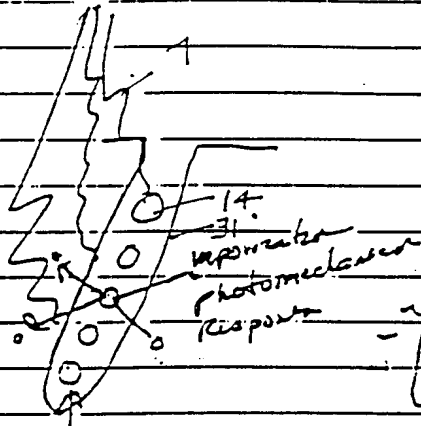 14
31.
vaporization
photomechanical
Response